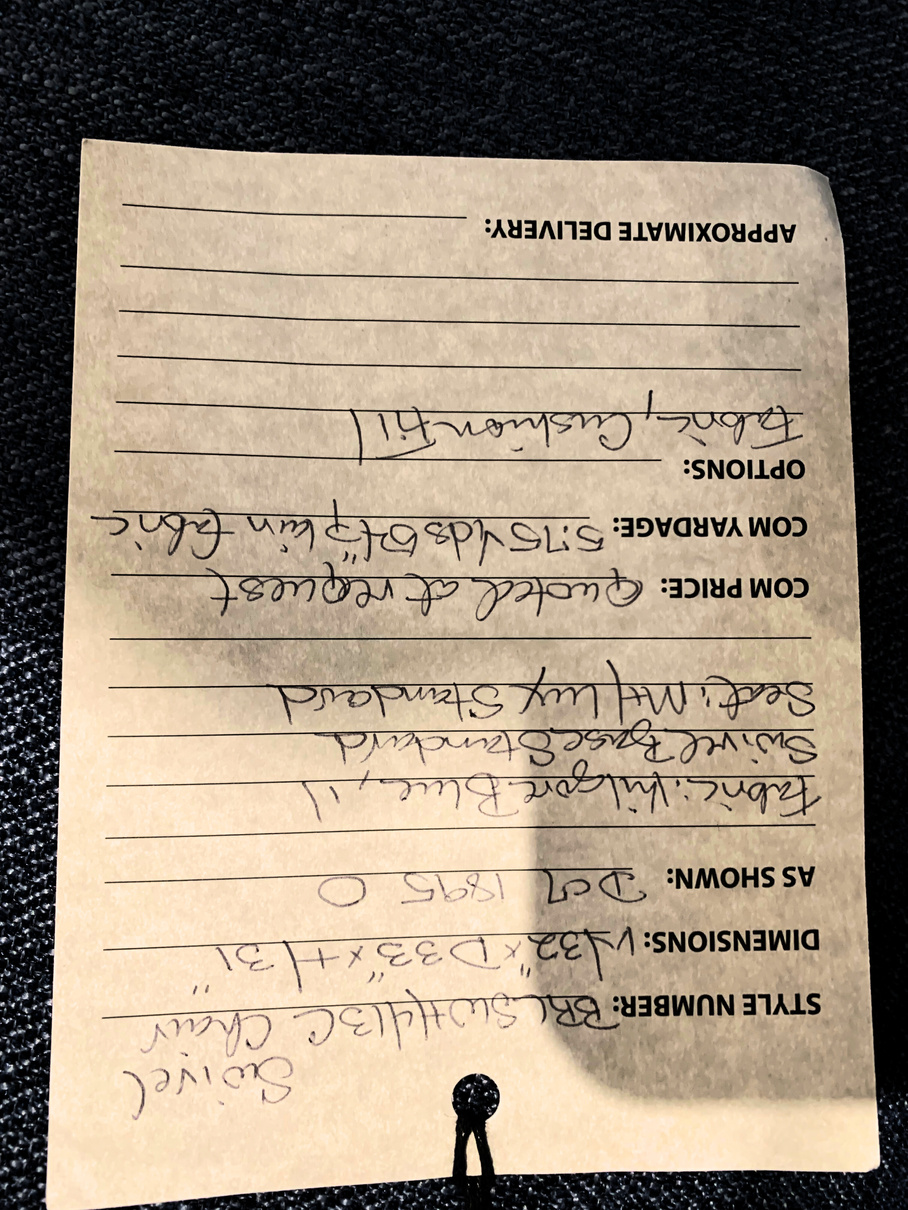 Swivel
STYLE NUMBER: Chair
DIMENSIONS: W32" x D33" x H31"
AS SHOWN: 1895
Fabric: Kilgore Blue, 11
Swivel Base Standard
Seat: Lux Standard
COM PRICE: Quoted at request
COM YARDAGE: 5.75 Yds 54" plain fabric
OPTIONS:
Fabric, Cushion Fill
APPROXIMATE DELIVERY: